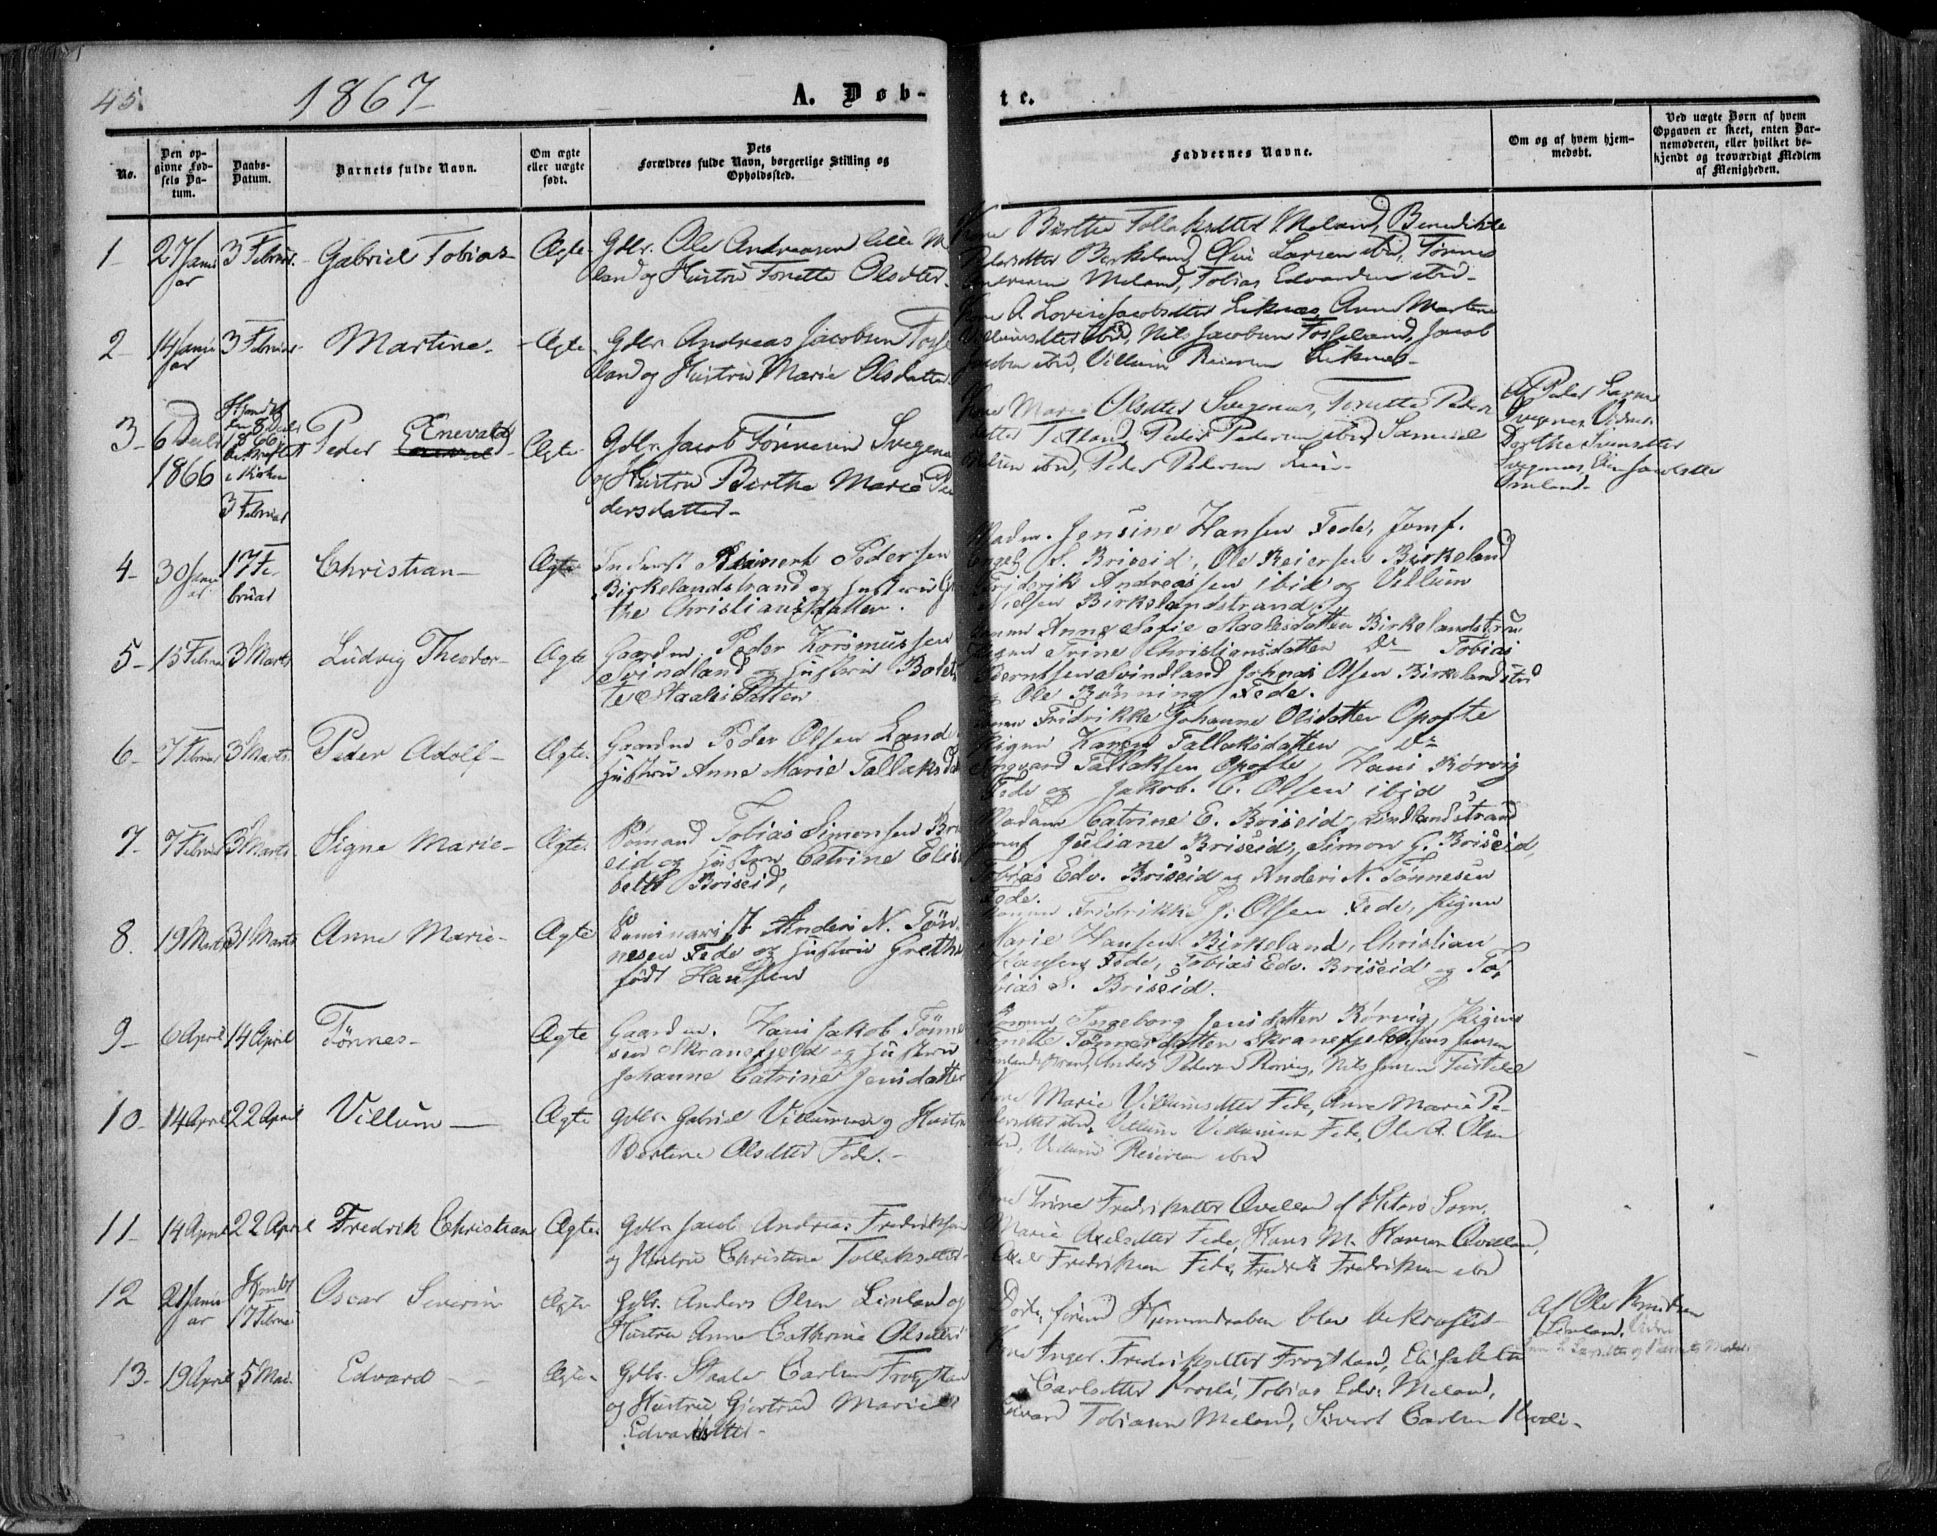 45.
1867
A. Døb-
te.
No.
Den op-
givne Fød-
sels Da-
tum.
Daabs-
Datum.
Barnets fulde Navn.
Om ægte
eller uægte
født.
Dets
Forældres fulde Navn, borgerlige Stilling og
Opholdssted.
Faddernes Navne.
Om og af hvem hjem-
medøbt.
Ved uægte Børn af hvem
Opgaven er skeet, enten Bar-
nemoderen, eller hvilket be-
kjendt og troværdigt Medlem
af Menigheden.
1 27 Janu
ar 3 Februar Gabriel Tobias Ægte Gdbr. Ole Andreasen lille M
land og Hustru Tonette Olsdtter
Birthe Tollaksdtter Meland, Benedikte
Pedersdtter Birkeland, Larsen ibid, Tønnes
Andreasen Meland, Tobias Edvardsen ibid
2 14 Janu
ar 3 Februar Martine Ægte Gdbr. Andreas Jacobsen Foss
land og Hustru Marie Olsdatter
A. Lovise Jacobsdtter Liknes, Anne Martine
Villumsdtter ibid, Nils Jacobsen Fosseland, Jacob
ibid, Villum Reiersen Liknes
3 6 Decbr
1866 Hjemdøbt
8 Decbr
1866
bekræftet
i Kirken
3 Februar Peder Enevald Ægte Gdbr. Jacob Tønnesen Svegenes
og Hustru Birthe Marie Pe
dersdatter
Marie Olsdtter Svegenes, Tonette Peders
datter Peder Pedersen ibid, Samuel
ibid, Peder Pedersen
Af Peder Larsen
Svegenes, Vidner
Dorthe Svensdtter
Svegenes, Jacobsdtter
4 30 Janu
ar 17 Fe-
bruar Christian Ægte Inderst Reinert Pedersen
Birkelandstrand og Hustru
the Christiansdatter.
Madm. Jensine Hansen Fede, Jomf.
Engel S. Briseid, Ole Reiersen Birkeland
Fridrik Andreassen ibid og Villum
Nielsen Birkelandstrand.
5 15 Februar 3 Marts Ludvig Theodor Ægte Gaardm. Peder Rasmussen
Svindland og Hustru Bolet
te Staalesdatter
Anne Sofie Staalesdatter Birkelandstran
Pigen Trine Christiansdatter Do Tobias
Berntsen Svindland Johnas Olsen Birkelandstrd
og Ole Rønning Fede.
6 7 Februar 3 Marts Peder Adolf Ægte Gaardm Peder Olsen Lande
Hustru Anne Marie Tallaksd
Fridrikke Johanne Olsdatter Opofte
Pigen Karen Tallaksdatter Do
Tallaksen Opofte, Hans Rørvig
Fede og Jakob. C. Olsen ibid
7 7 Februar 3 Marts Signe Marie Ægte Tobias Simonsen Bri
eid og Hustru Catrine Elisa
beth Briseid,
Madam Catrine E. Briseid, Lindlandstrand
Jomf Juliane Briseid, Simon G. Briseid,
Tobias Edv. Briseid og Anders N. Tønnesen
Fede.
8. 19 Marts 31 Marts Anne Marie Ægte Seminarist Anders N. Tøn-
nesen Fede og Hustru Grethe
født Hansen
Fridrikke J. Olsen Fede, Pigen
Marie Hansen Birkeland, Christian
Hansen Fede, Tobias Edv. Briseid og To,
bias S. Briseid.
9 6 April 14 April Tønnes Ægte Gaardm. Hans Jakob Tønne
sen Skranefjeld og Hustru
Johanne Catrine Jensdatter
Ingeborg Jensdatter Rørvig, Pigen
Tønnesdatter Skranefjeld, Jens Jensen
Anders Pedersen Rørvig, Nils Jensen
10 14 April 22 April Villum Ægte Gdbr. Gabriel Villumsen og Hustru
Bertine Olsdtter Fede.
Marie Villumsdtter Fede, Anne Marie Pe-
dersdtter ibid, Villum Villumsen Fede, Ole A. Olsen
ibid, Villum Reiersen ibid
11 14 April 22 April Fredrik Christian Ægte Gdbr. Jacob Andreas Fredriksen
og Hustru Christine Tollaksdtter
Trine Fredriksdtter Qvelland af Hiterø Sogn,
Marie Axelsdtter Fede, Hans M. Hansen Qvelland,
Axel Fredriksen Fede, Fredrik Fredriksen ibid
12 21 Janu
ar Hjemdøbt
17 Februar Oscar Severin Ægte Gdbr. Anders Olsen Linland og
Hustru Anne Cathrine Olsdtter
Hjemmedaaben blev bekræftet
af Ole Knudsen
Linland,
13 19 April 5 Mai Edvard Ægte Gdbr. Staale Carlsen Frøytland
og Hustru Giertrud Marie
Edvardsdtter
Inger Fredriksdtter Frøytland, Elisabeth
Carlsdtter Tobias Edv. Meland,
Edvard Tobiasen Meland, Sivert Carlsen